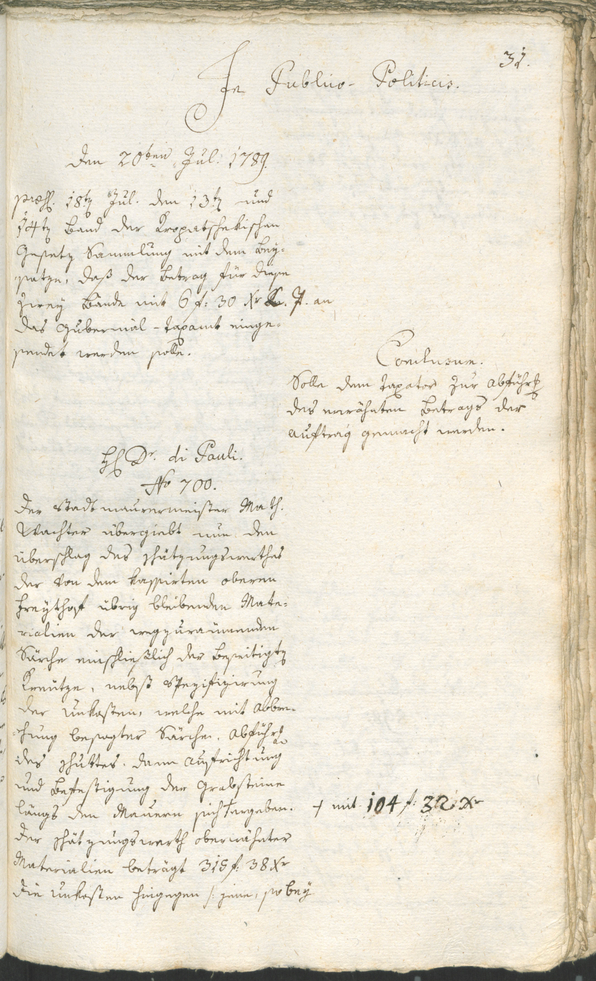 31.
In Publico-Politicis.
Den 20ten Jul: 1789.
præs. 18t Jul. den 13t und
14t Band der Kropatschekischen
Gesetz Sammlung mit dem Bey-
satze, daß der Betrag für diese
zwey Bände mit 6 f: 30 Xr an
das Gubernial-Taxamt einge-
sendet werden solle.
Conclusum.
Solle dem Taxator zur Abfuhrt
des erwähnten Betrags der
Auftrag gemacht werden.
H Dr. di Pauli.
No 700.
Der Stadtmaurermeister Math.
Wachter übergiebt nun den
Überschlag des Schätzungswerthes
der von dem kassirten oberen
Freythof übrig bleibenden Mate-
rialien der wegzuraümenden
Särche einschließlich der beseitigt
Kreutze, nebst Spezifizirung
der Unkosten, welche mit Abbre-
chung besagter Särche, Abfuhrt
des Schuttes, dann Aufrichtung
und Befestigung der Grabsteine
längs den Mauern sich † ergeben.
† mit 104 f. 32 Xr
Der Schätzungswerth obernähnter
Materialien beträgt 315 f. 38 Xr
die Unkosten hingegen /: jene, so bey